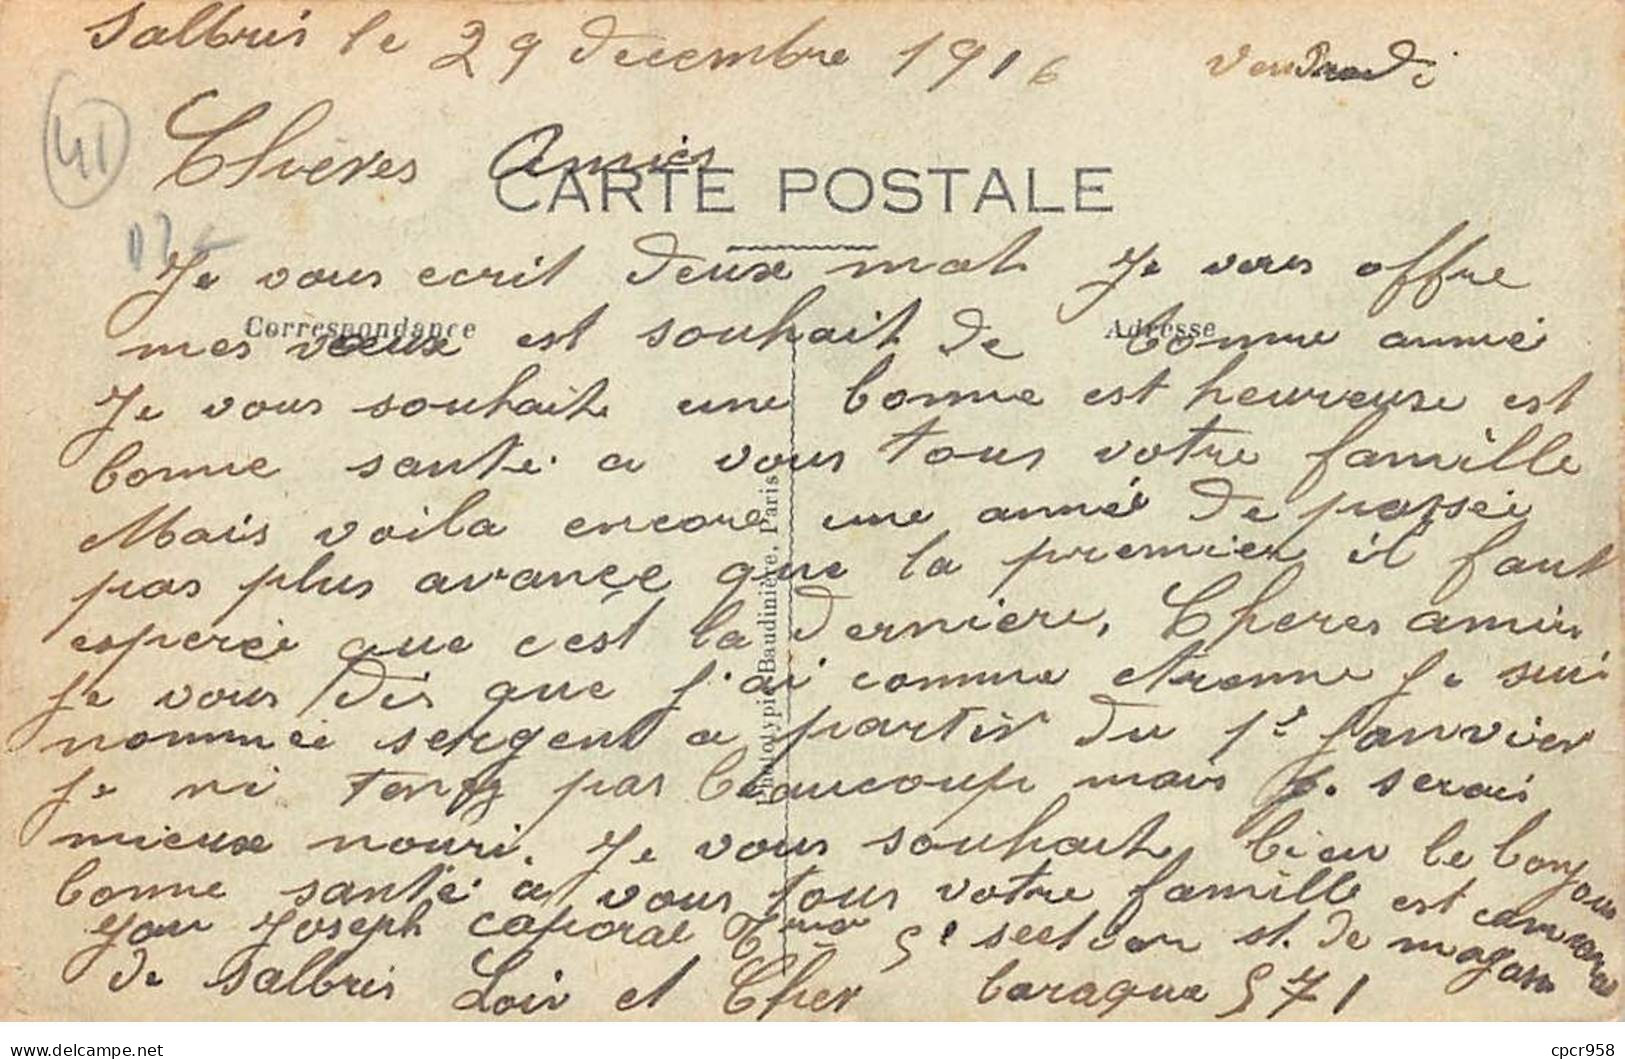 Salbris le 29 decembre 1916 Vendredi
41
Chères Amies
CARTE POSTALE
Je vous ecrit deux mot Je vous offre
Correspondance
Adresse
mes vœux est souhait de bonne année
Je vous souhaite une bonne est heureuse est
bonne santé a vous tous votre famille
Mais voila encore une année de passée
pas plus avance que la premier il faut
esperée que c'est la derniere, Cheres amies
je vous dis que j'ai comme etrenne je sui
nommée sergent a partir du 1e janvier
je ni tenez pas beaucoup mais je serais
mieux nouri. Je vous souhaite bien le bonjour
bonne santé a vous tous votre famille est
Joseph caporal section st. de magasin
de Salbris Loir et Cher baraque 571
Phototypie Baudinière, Paris
delcampe.net
cpcr958